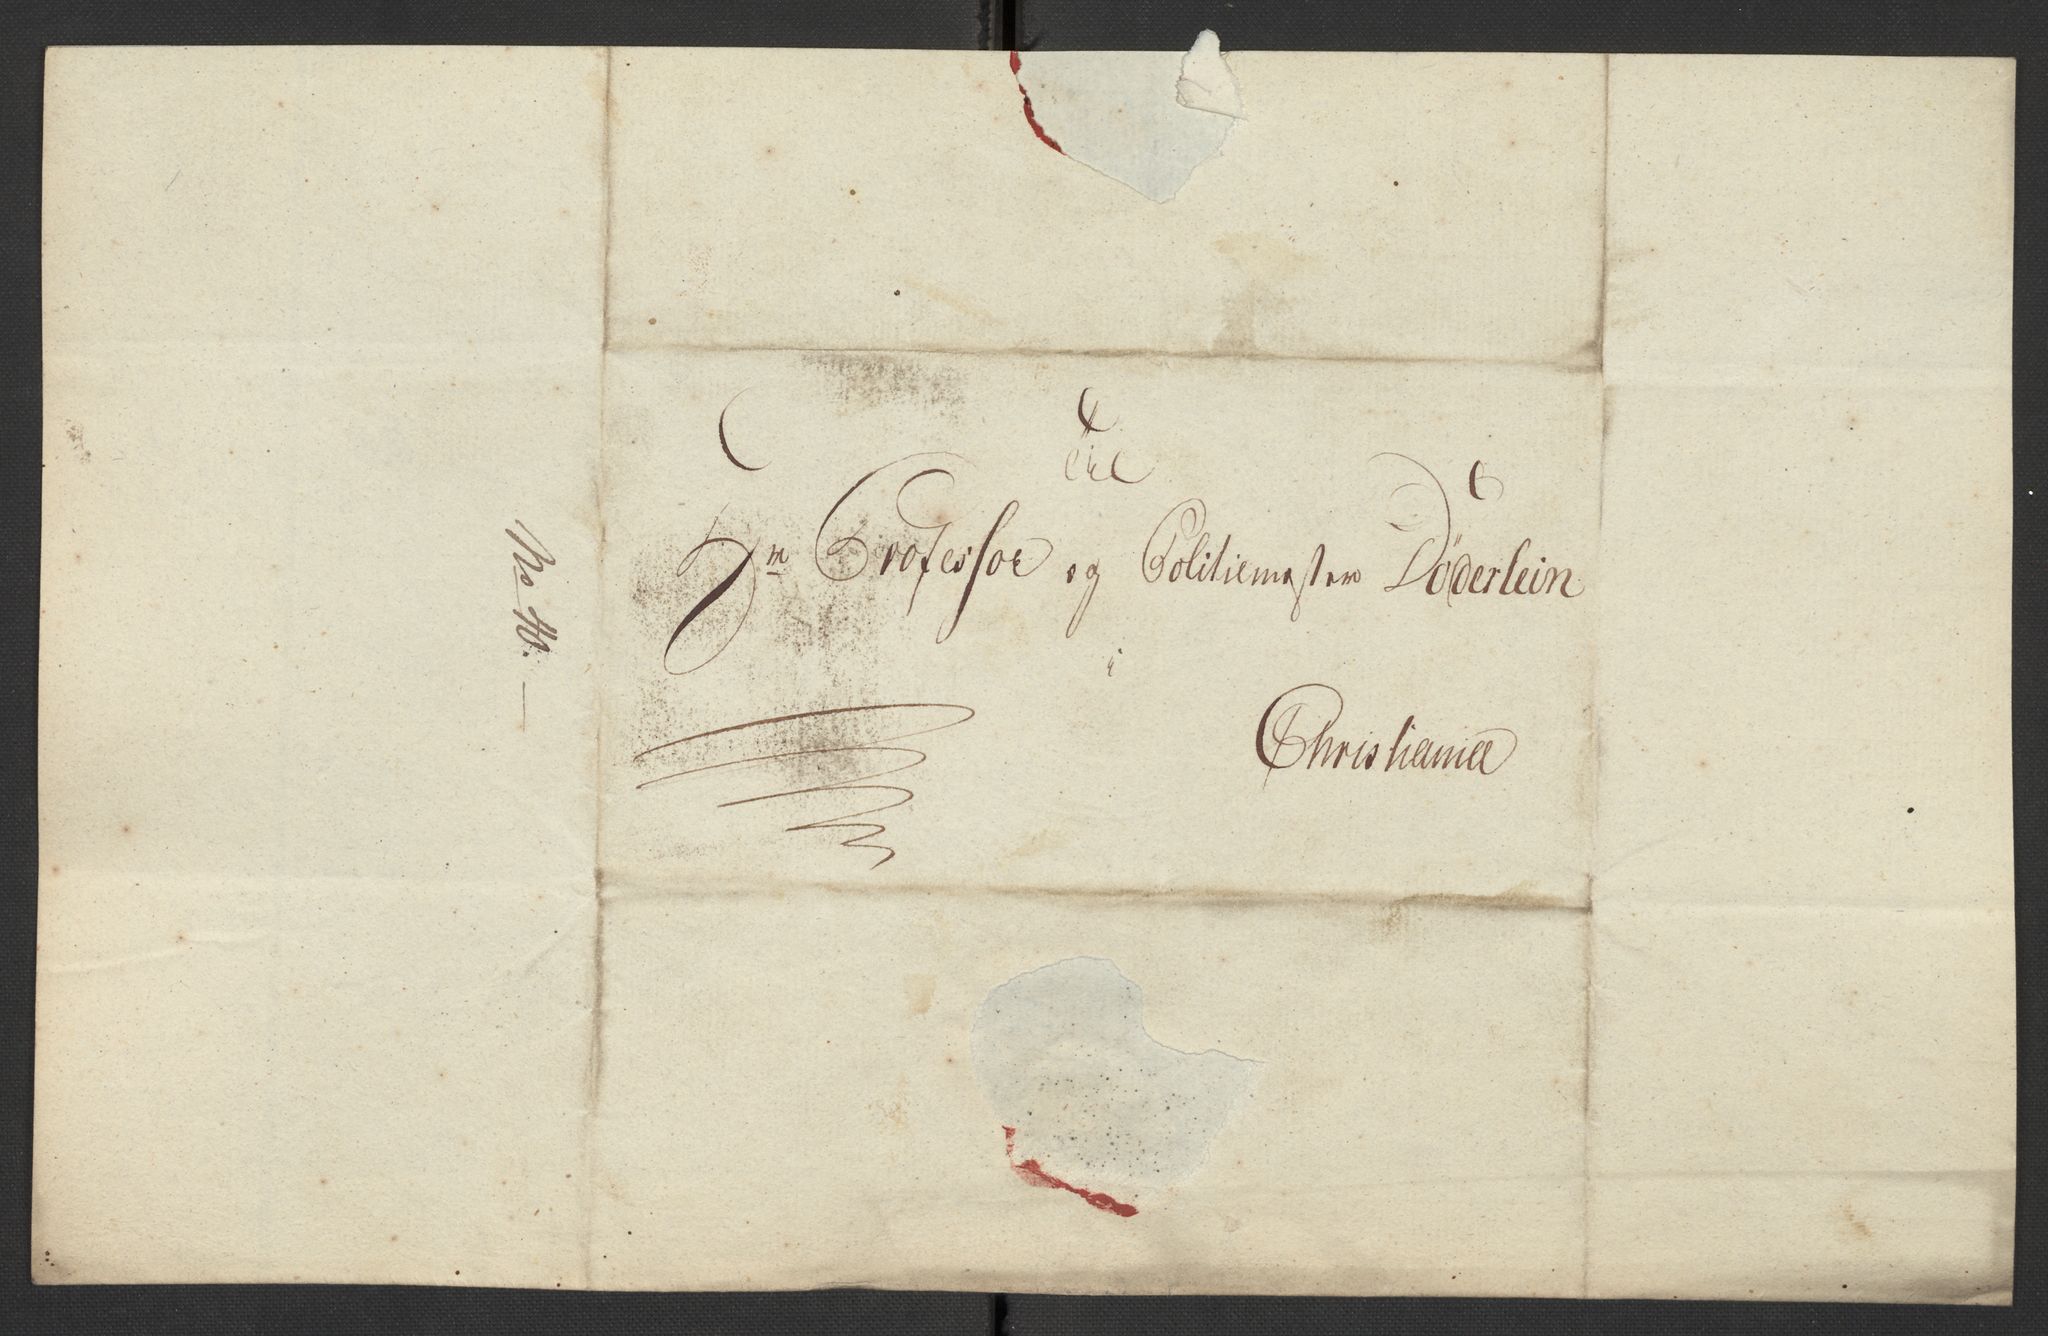 Til
Hr Professor og Politiemester Döderlein
i
Christiania
No